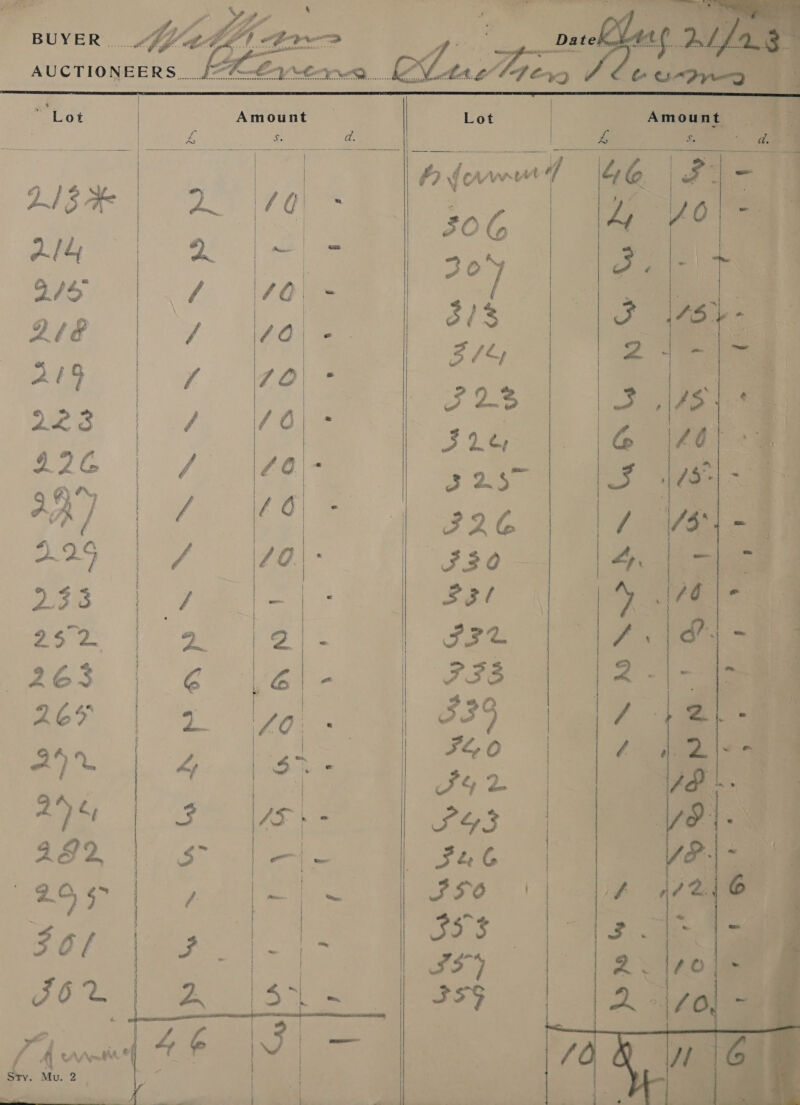 BUYER Williams Date Aug 21/23
AUCTIONEERS Stevens Auction Rooms
Lot Amount Lot Amount
£ s. d. £ s. d.
213* 2 10 -
214 2 - -
215 1 10 -
218 1 10 -
219 1 10 -
223 1 10 -
226 1 10 -
227 1 10 -
229 1 10 -
233 1 - -
252 2 2 -
263 6 6 -
265 2 10 -
272 4 5 -
274 3 15 -
282 5 - -
295 1 - -
301 3 - -
302 2 5 -
forward 46 3 -
Sty. Mu. 2
forward 46 3 -
306 4 10 -
307 3 - -
313 3 15 -
314 2 - -
323 3 15 -
324 6 10 -
325 3 15 -
326 1 15 -
330 4 - -
331 7 10 -
332 1 8 -
333 2 - -
339 1 2 -
340 1 2 -
342 18 -
343 18 -
346 18 -
350 1 12 6
353 3 - -
357 2 10 -
359 2 10 -
104 11 6